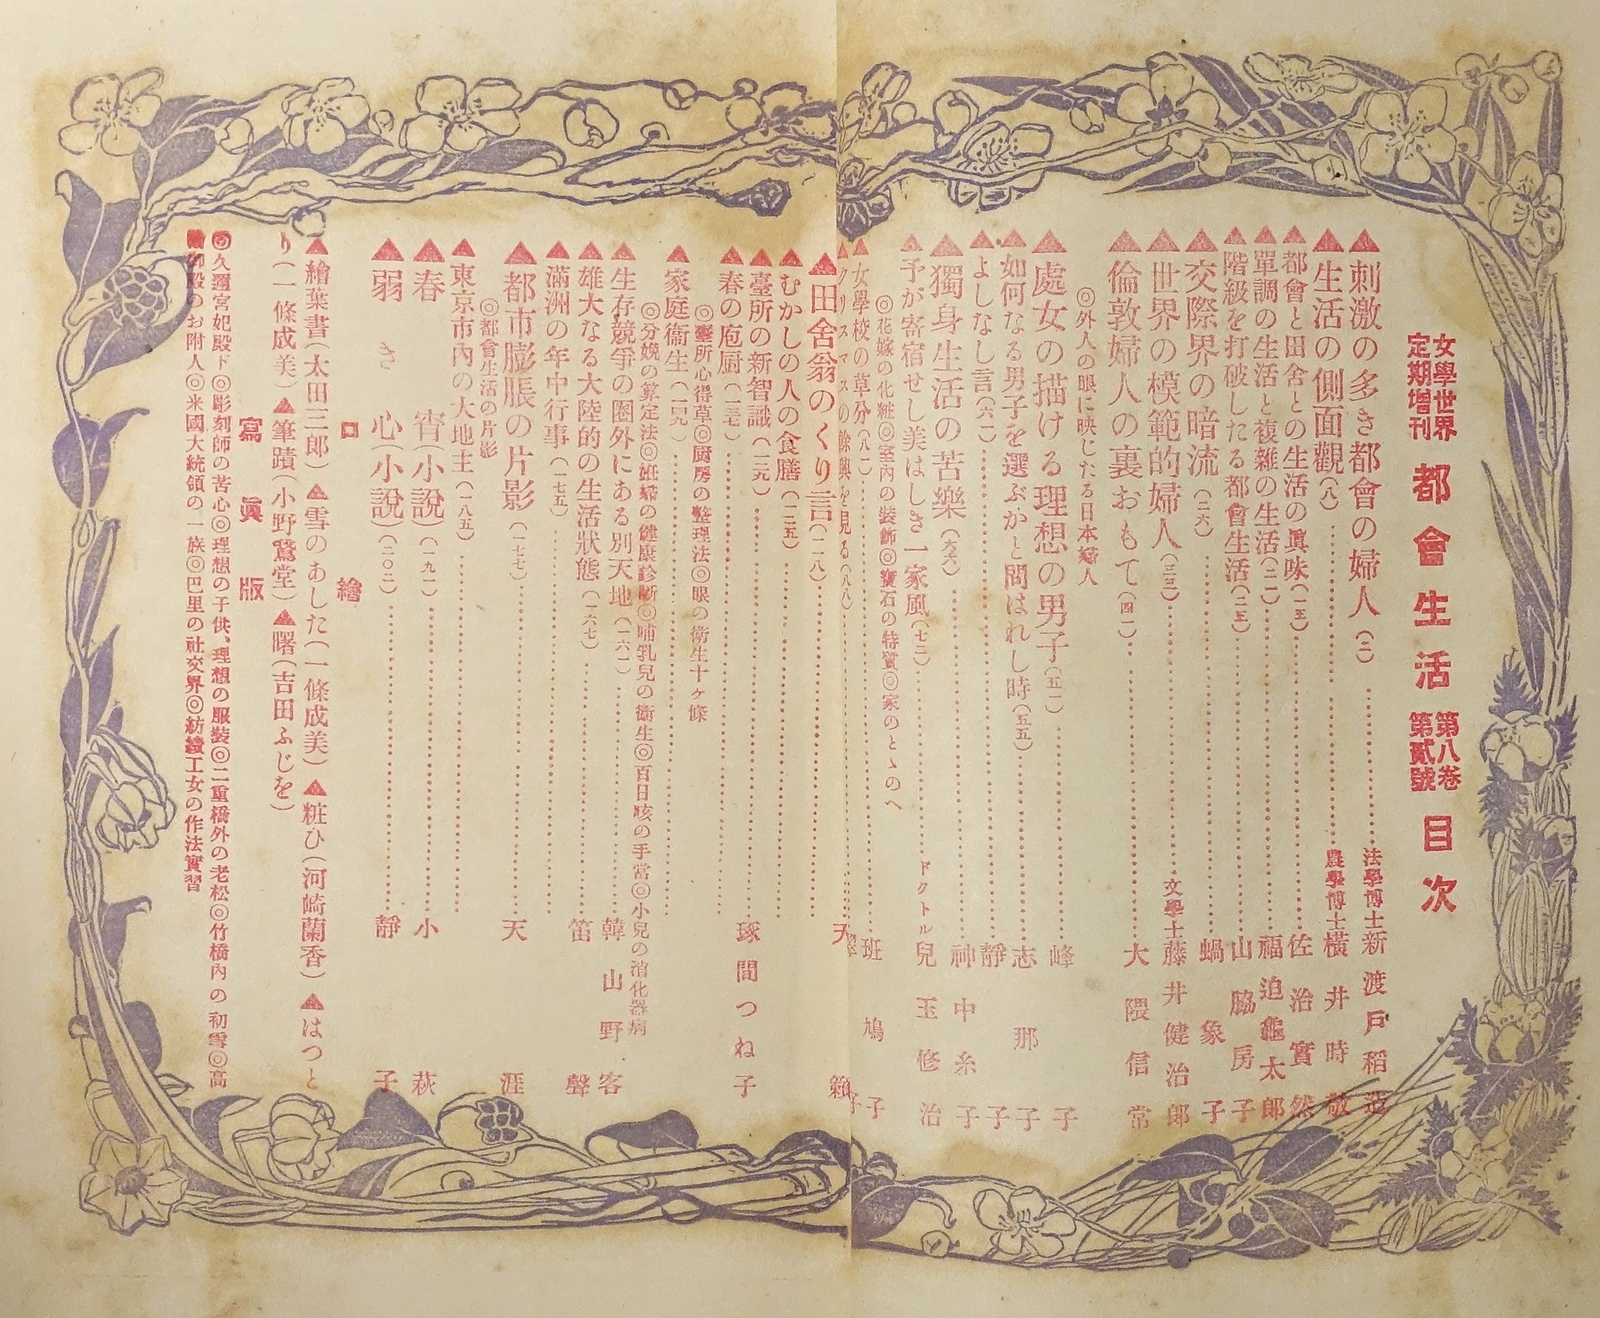 女學世界
定期增刊
都會生活
第八卷
第貳號
目次
▲刺激の多き都會の婦人(二)………法學博士 新渡戶稻造
▲生活の側面觀(八)………農學博士 橫井時敬
▲都會と田舍との生活の眞味(一五)………佐治實然
▲單調の生活と複雜の生活(二一)………福迫龜太郞
▲階級を打破したる都會生活(二五)………山脇房子
▲交際界の暗流(二六)………蝸象子
▲世界の模範的婦人(三三)………文學士 藤井健治郞
▲倫敦婦人の裏おもて(四一)………大隈信常
◎外人の眼に映じたる日本婦人
▲處女の描ける理想の男子(五一)………峰子
▲如何なる男子を選ぶかと問はれし時(五五)………志那子
▲よしなし言(六一)………靜子
▲獨身生活の苦樂(六六)………神中糸子
▲予が寄宿せし美はしき一家風(七二)………ドクトル 兒玉修治
◎花嫁の化粧◎室內の裝飾◎寶石の特質◎家のとゝのへ
▲女學校の草分(八二)………班鳩子
▲クリスマスの餘興を見る(八八)………
▲田舍翁のくり言(一一八)………天籟
▲むかしの人の食膳(一二五)………
▲臺所の新智識(一二九)………
▲春の庖厨(一三七)………琢間つね子
◎臺所心得草◎厨房の整理法◎眼の衛生十ヶ條
▲家庭衞生(一四九)………
◎分娩の算定法◎姙婦の健康診斷◎哺乳兒の衞生◎百日咳の手當◎小兒の消化器病
▲生存競爭の圈外にある別天地(一六一)………韓山野客
▲雄大なる大陸的の生活狀態(一六七)………笛聲
▲滿洲の年中行事(一七五)………
▲都市膨脹の片影(一七七)………天涯
◎都會生活の片影
▲東京市內の大地主(一八五)………
▲春宵(小說)(一九一)………小萩
▲弱き心(小說)(二〇二)………靜子
口繪
▲繪葉書(太田三郎)▲雪のあした(一條成美)▲粧ひ(河崎蘭香)▲はつと
り(一條成美)▲筆蹟(小野鵞堂)▲曙(吉田ふじを)
寫眞版
◎久邇宮妃殿下◎彫刻師の苦心◎理想の子供、理想の服裝◎二重橋外の老松◎竹橋內の初雪◎高
御殿のお附人◎米國大統領の一族◎巴里の社交界◎紡績工女の作法實習